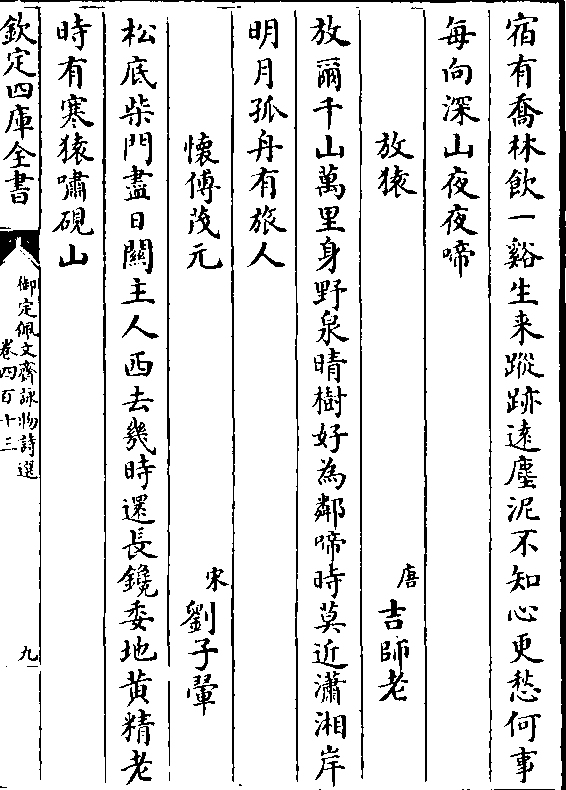 宿有喬林飲一谿生来蹤跡逺塵泥不知心更愁何事
每向深山夜夜啼
放猿
唐
吉師老
放爾千山萬里身野泉晴樹好為鄰啼時莫近瀟湘岸
明月孤舟有旅人
懷傅茂元
宋
劉子翬
松底柴門盡日關主人西去幾時還長鑱委地黄精老
時有寒猿嘯硯山
欽定四庫全書
御定佩文齋詠物詩選
卷四百十三
九